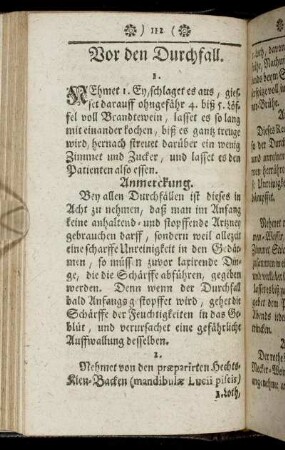 ) 112 (
Vor den Durchfall.
1.
NEhmet 1. Ey, schlagt es aus, gies-
set darauff ohngefähr 4. biß 5. Löf-
fel voll Brandtewein, lasset es so lang
mit einander kochen, biß es gantz treuge
wird, hernach streuet darüber ein wenig
Zimmet und Zucker, und lasset es den
Patienten also essen.
Anmerckung.
Bey allen Durchfällen ist dieses in
Acht zu nehmen, daß man im Anfang
keine anhaltend- und stopffende Artzney
gebrauchen darff, sondern weil allezeit
eine scharffe Unreinigkeit in den Gedär-
men, so müssen zuvor laxirende Din-
ge, die die Schärffe abführen, gegeben
werden. Denn wenn der Durchfall
bald Anfangs gestopffet wird, gehet die
Schärffe der Feuchtigkeiten in das Ge-
blüt, und verursachet eine gefährliche
Auffwallung desselben.
2.
Nehmet von den præparirten Hechts-
Kien-Backen (mandibulæ Lucii piscis)
1. Loth,